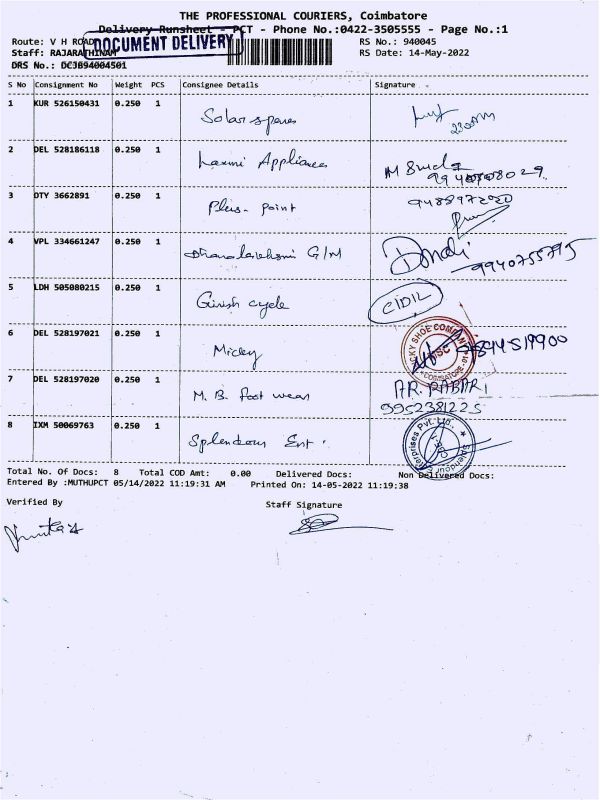 THE PROFESSIONAL COURIERS, Coimbatore
Delivery Runsheet - PCT - Phone No.:0422-3505555 - Page No.:1
Route: V H ROAD
DOCUMENT DELIVERY
RS No.: 940045
Staff: RAJARATHINAM
RS Date: 14-May-2022
DRS No.: DCJB94004501
S No Consignment No Weight PCS Consignee Details Signature
1 KUR 526150431 0.250 1 Solar spares
2 DEL 528186118 0.250 1 Laxmi Appliances
3 DTY 3662891 0.250 1 Plus- Point 9488972020
4 VPL 334661247 0.250 1 Dhanalakshmi G/M 9940755795
5 LDH 505080215 0.250 1 Girish cycle CIDIL
6 DEL 528197021 0.250 1 Micky
7 DEL 528197020 0.250 1 M.B. Foot wear AR. RABARI
9952381225
8 IXM 50069763 0.250 1 Splendour Ent.
Total No. Of Docs: 8 Total COD Amt: 0.00 Delivered Docs: Non Delivered Docs:
Entered By :MUTHUPCT 05/14/2022 11:19:31 AM Printed On: 14-05-2022 11:19:38
Verified By Staff Signature